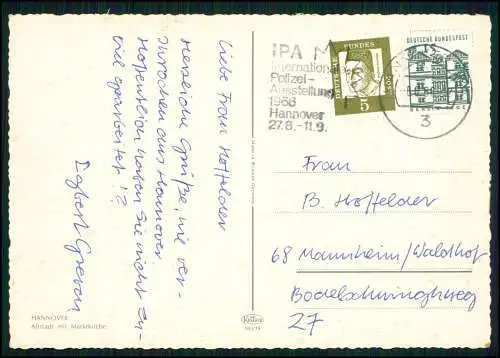 Liebe Frau Hoffelder
Herzliche Grüße, wie ver-
sprochen aus Hannover
Hoffentlich haben Sie nicht zu-
viel gearbeitet!?
Egbert
HANNOVER
Altstadt mit Marktkirche
IPA
International
Polizei-
Ausstellung
1966
Hannover
27.8.-11.9.
DEUTSCHE BUNDESPOST
5
DEUTSCHE BUNDESPOST
3
Frau
B. Hoffelder
68 Mannheim/Waldhof
Bodelschwinghweg
27